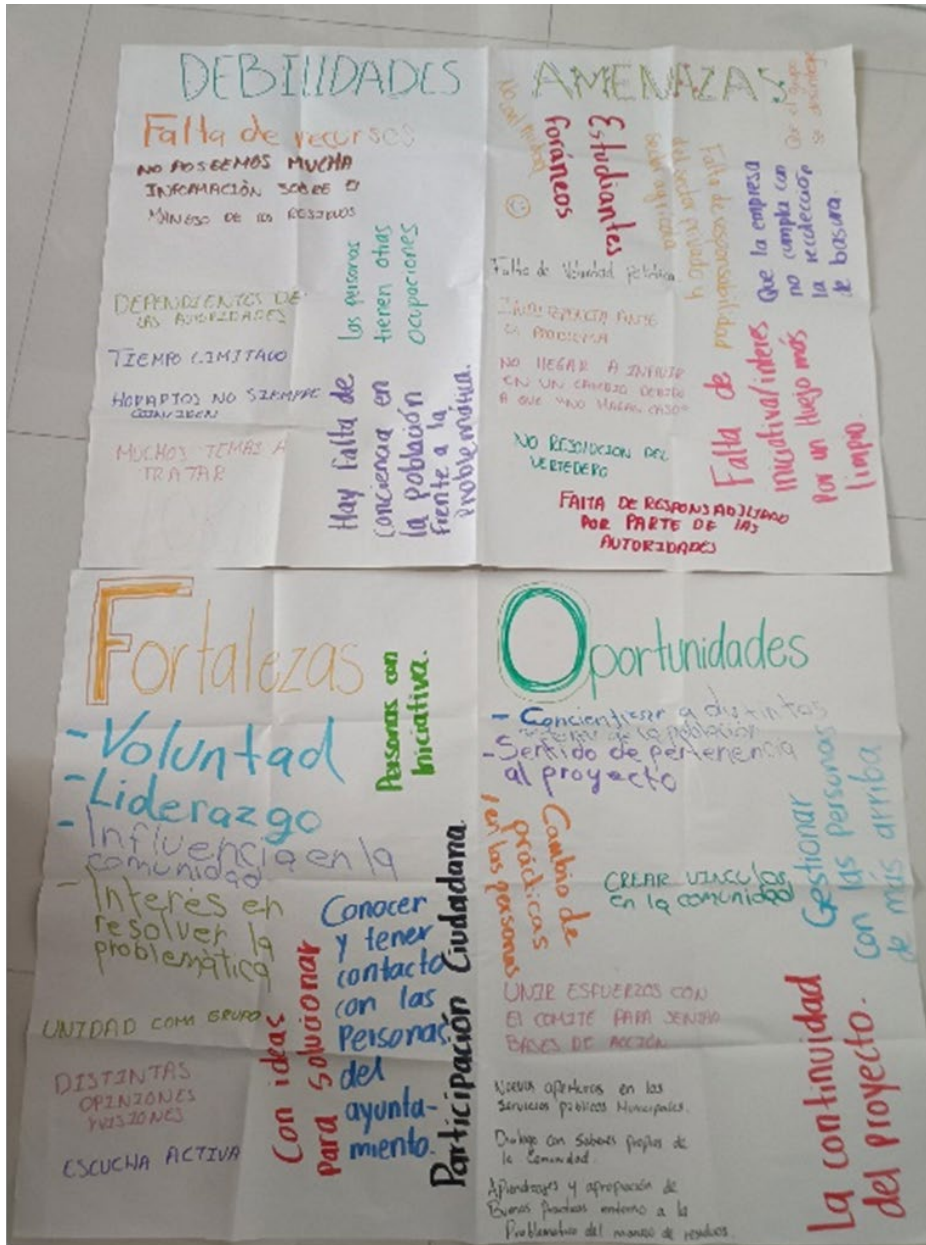 DEBILIDADES
Falta de recursos
NO POSEEMOS MUCHA
INFORMACIÓN SOBRE El
MANEJO DE LOS RESIDUOS
las personas
tienen otras
ocupaciones
DEPENDIENTES DE
LAS AUTORIDADES
TIEMPO LIMITADO
HORARIOS NO SIEMPRE
COINCIDEN
MUCHOS TEMAS A
TRATAR
Hay falta de
conciencia en
la población
frente a la
Problemática.
AMENAZAS
Estudiantes
foráneos
Falta de responsabilidad
del sector privado y
Que el grupo
se desintegre
Que la empresa
no cumpla con
la recolección
de basura.
Falta de Voluntad política
INDIFERENCIA ANTE
LA PROBLEMA
NO LLEGAR A INFLUIR
EN UN CAMBIO DEBIDO
A QUE "NO HAGAN CASO"
NO RESOLUCION DEL
VERTEDERO
Falta de
iniciativa/interes
por un Huejo más
limpio.
FALTA DE RESPONSABILIDAD
POR PARTE DE LAS
AUTORIDADES
Fortalezas
- Voluntad
- Liderazgo
- Influencia en la
comunidad
- Interés en
resolver la
problemática
UNIDAD COMO GRUPO
DISTINTAS
OPINIONES
VISIONES
ESCUCHA ACTIVA
Personas con
Iniciativa.
Con ideas
para solucionar
Conocer
y tener
contacto
con las
Personas
del
ayunta-
miento.
Participación Ciudadana.
Oportunidades
- Concientizar a distintos
de la población
- Sentido de pertenencia
al proyecto
Cambio de
prácticas
en las personas
CREAR VINCULOS
en la comunidad
Gestionar
con las personas
de más arriba
UNIR ESFUERZOS CON
El COMITE PARA SENTAR
BASES DE ACCIÓN
Nuevas aperturas en los
Servicios públicos Municipales.
Dialogo con Saberes propios de
la Comunidad.
Aprendizajes y apropiación de
Buenas Practicas entorno a la
Problematica del manejo de residuos.
La continuidad
del proyecto.